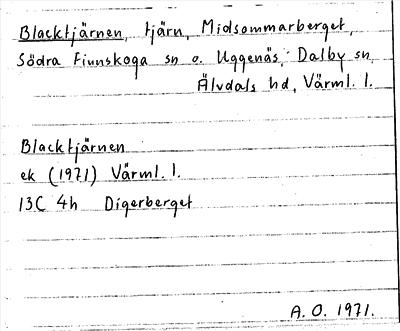 Blacktjärnen, tjärn, Midsommarberget,
Södra Finnskoga sn o. Uggenäs, Dalby sn,
Älvdals hd, Värml. l.
Blacktjärnen
ek (1971) Värml. l.
13C 4h Digerberget
A. O. 1971.